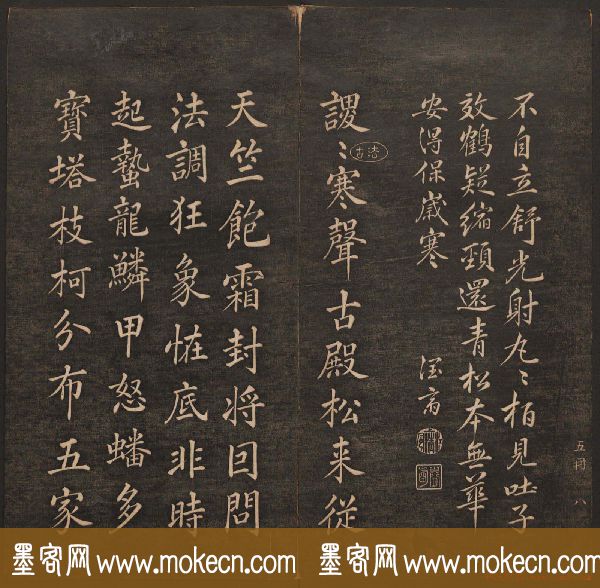 不自立舒光射丸〻柏見吐子
效鶴疑縮頸還青松本無華
安得保歲寒
謖〻寒聲古殿松来従
天竺飽霜封将回問
法調狂象恠底非時
起蟄龍鱗甲怒蟠多
寶塔枝柯分布五家
五冊 八
墨客网 www.mokecn.com
墨客网 www.mokecn.com